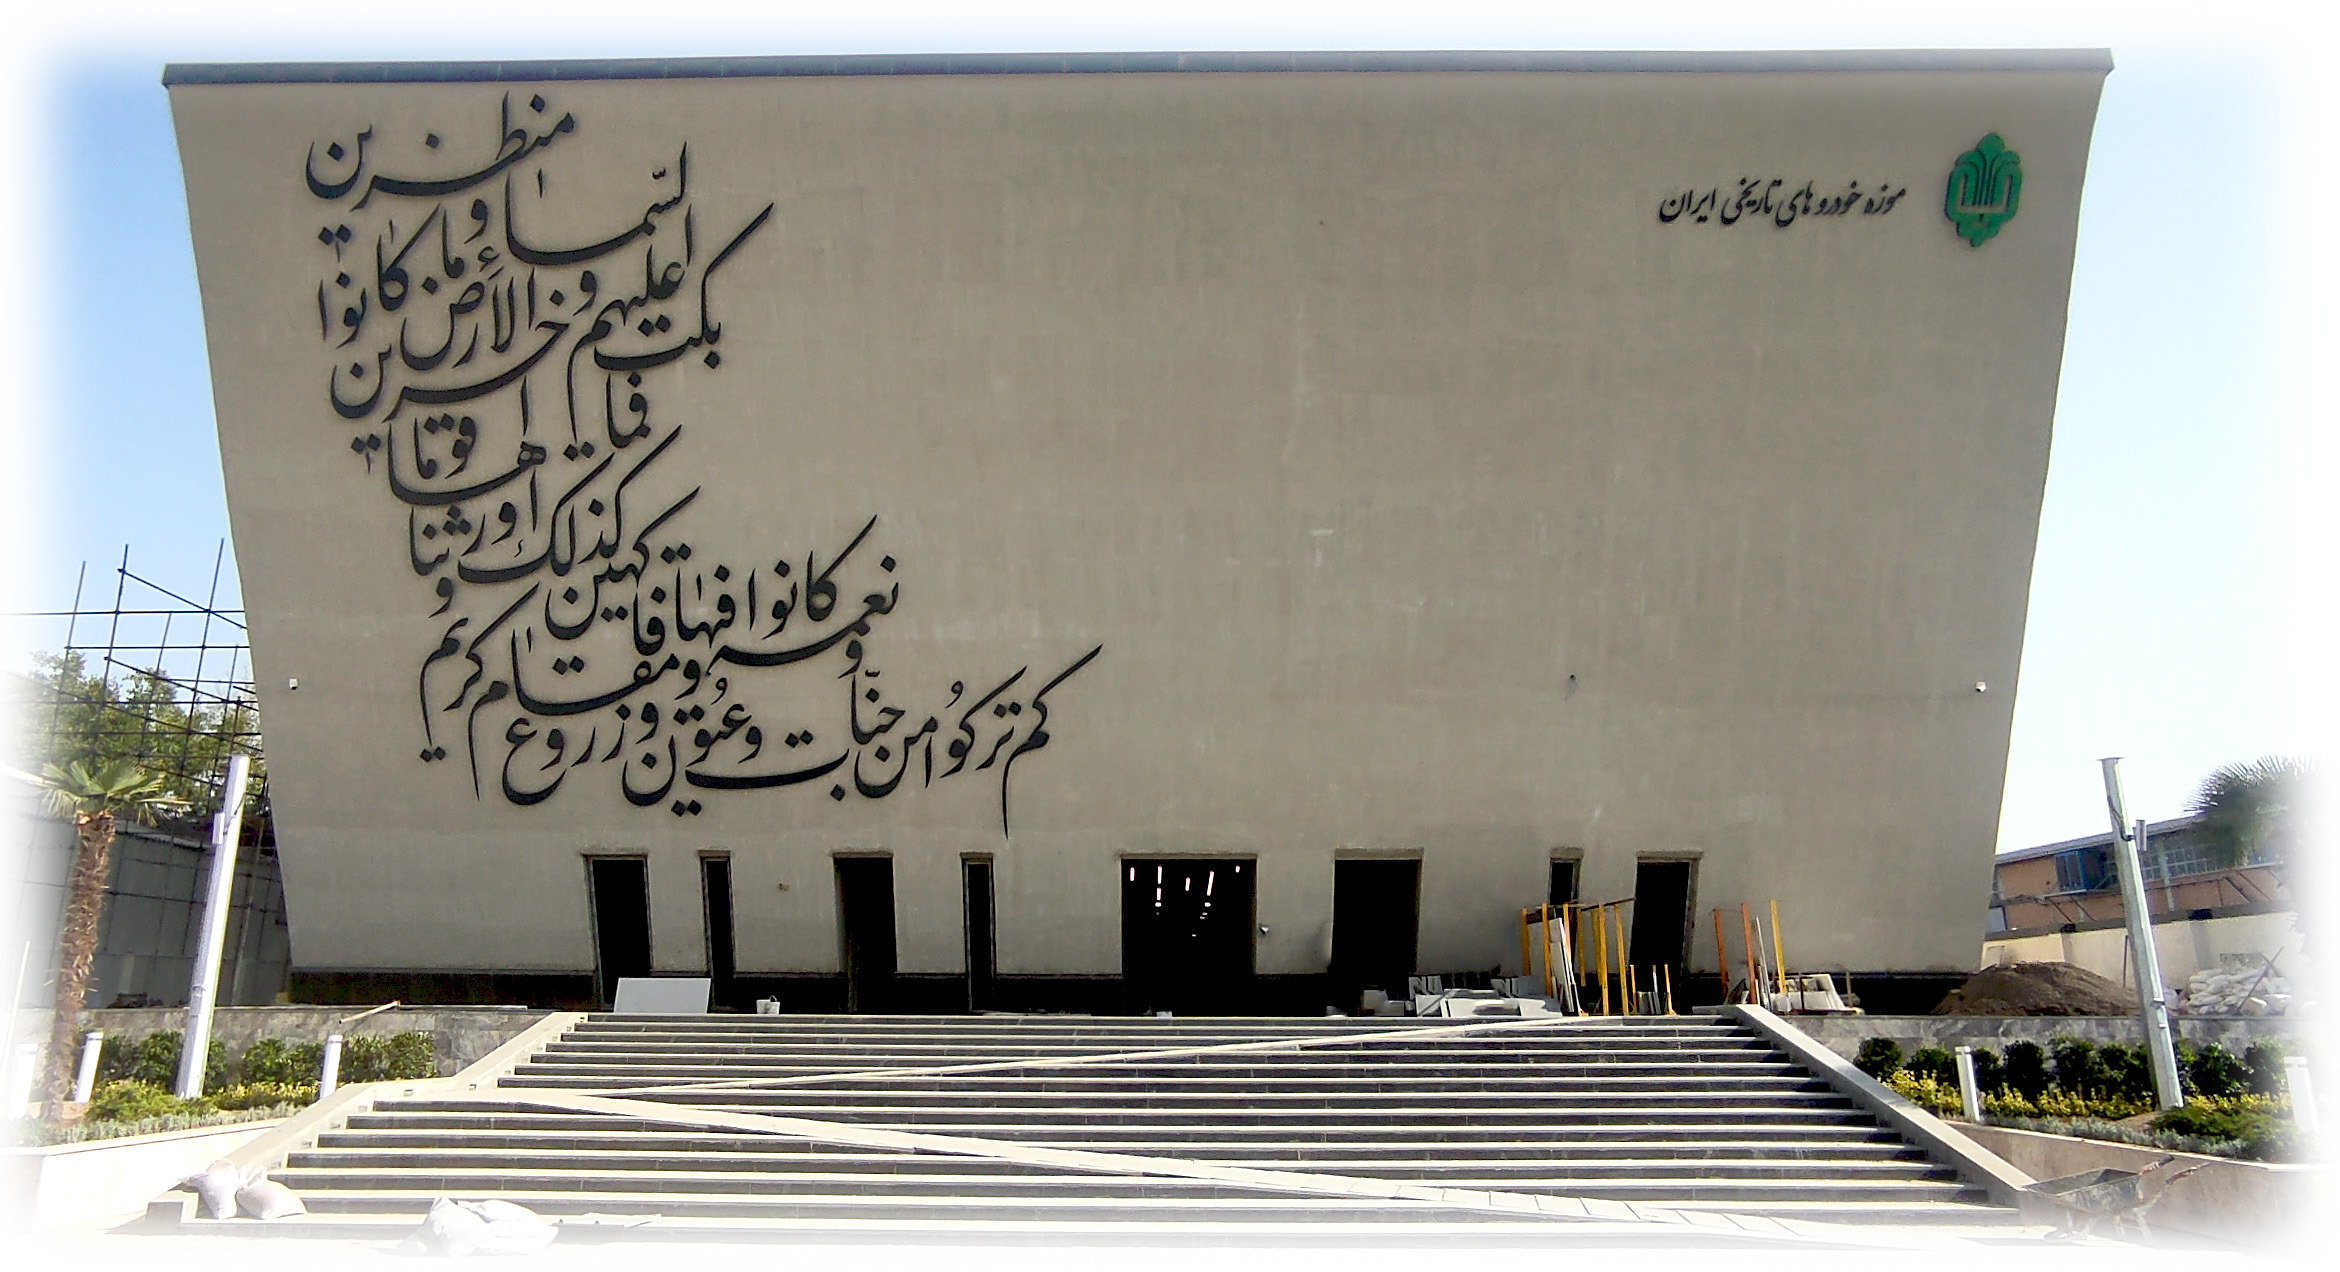 موزه خودرو های تاریخی ایران
کم ترکوُا من جنّات وعُیُون وزروع ومقام کریم
و نعمه کانوا فیها فاکهین
کذلک و اورثناها قوما اخرین
فما بکت علیهم السّماء و الأرض و ما کانوا منظرین